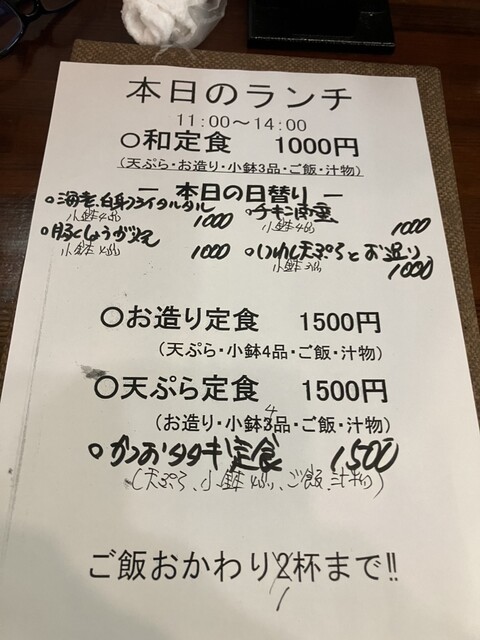 本日のランチ
11:00～14:00
○和定食 1000円
(天ぷら・お造り・小鉢3品・ご飯・汁物)
― 本日の日替り ―
○海老、白身フライタルタル
小鉢4品 1000
○チキン南蛮
小鉢4品 1000
○豚しょうが焼
小鉢4品 1000
○いわし天ぷらとお造り
小鉢3品 1000
○お造り定食 1500円
(天ぷら・小鉢4品・ご飯・汁物)
○天ぷら定食 1500円
(お造り・小鉢4品・ご飯・汁物)
○かつおタタキ定食 1500
(天ぷら、小鉢4品、ご飯、汁物)
ご飯おかわり1杯まで!!